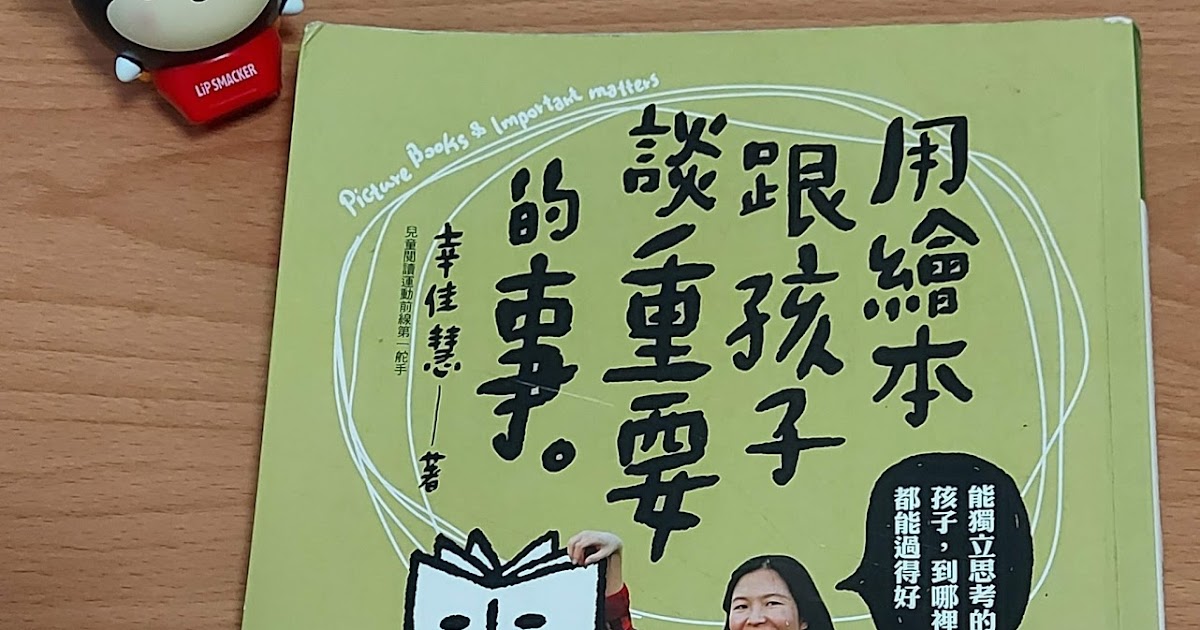 LiP SMACKER
Picture Books & Important matters
用繪本
跟孩子
談重要
的事。
幸佳慧——著
兒童閱讀運動前線第一舵手
能獨立思考的
孩子，到哪裡
都能過得好